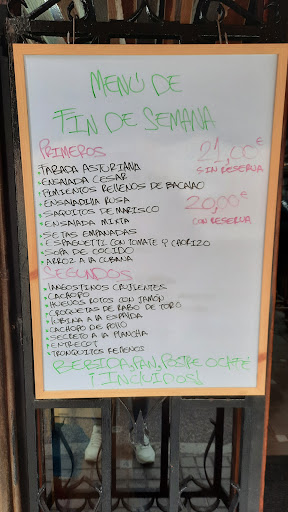 MENÚ DE
FIN DE SEMANA
PRIMEROS
21,00€
SIN RESERVA
• FABADA ASTURIANA
• ENSALADA CESAR
• PIMIENTOS RELLENOS DE BACALAO
• ENSALADILLA RUSA
20,00€
• SAQUITOS DE MARISCO
CON RESERVA
• ENSALADA MIXTA
• SETAS EMPANADAS
• ESPAGUETTI CON TOMATE Y CHORIZO
• SOPA DE COCIDO
• ARROZ A LA CUBANA
SEGUNDOS
• LANGOSTINOS CRUJIENTES
• CACHOPO
• HUEVOS ROTOS CON JAMÓN
• CROQUETAS DE RABO DE TORO
• LUBINA A LA ESPALDA
• CACHOPO DE POLLO
• SECRETO A LA PLANCHA
• ENTRECOT
• TRONQUITOS RELLENOS
BEBIDA, PAN, POSTRE O CAFÉ
¡INCLUIDOS!